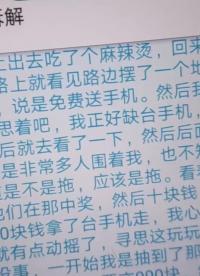 拆解
上出去吃了个麻辣烫,回来
路上就看见路边摆了一个地
,说是免费送手机。然后我
思着吧,我正好缺台手机,
后就去看了一下,然后后面
是非常多人围着我,也不知
道是不是拖,应该是。看着
他们在那中奖,然后十块钱
0块钱拿了台手机走,我心
就有点动摇了,寻思这玩玩
没事,一开始我是抽到了那